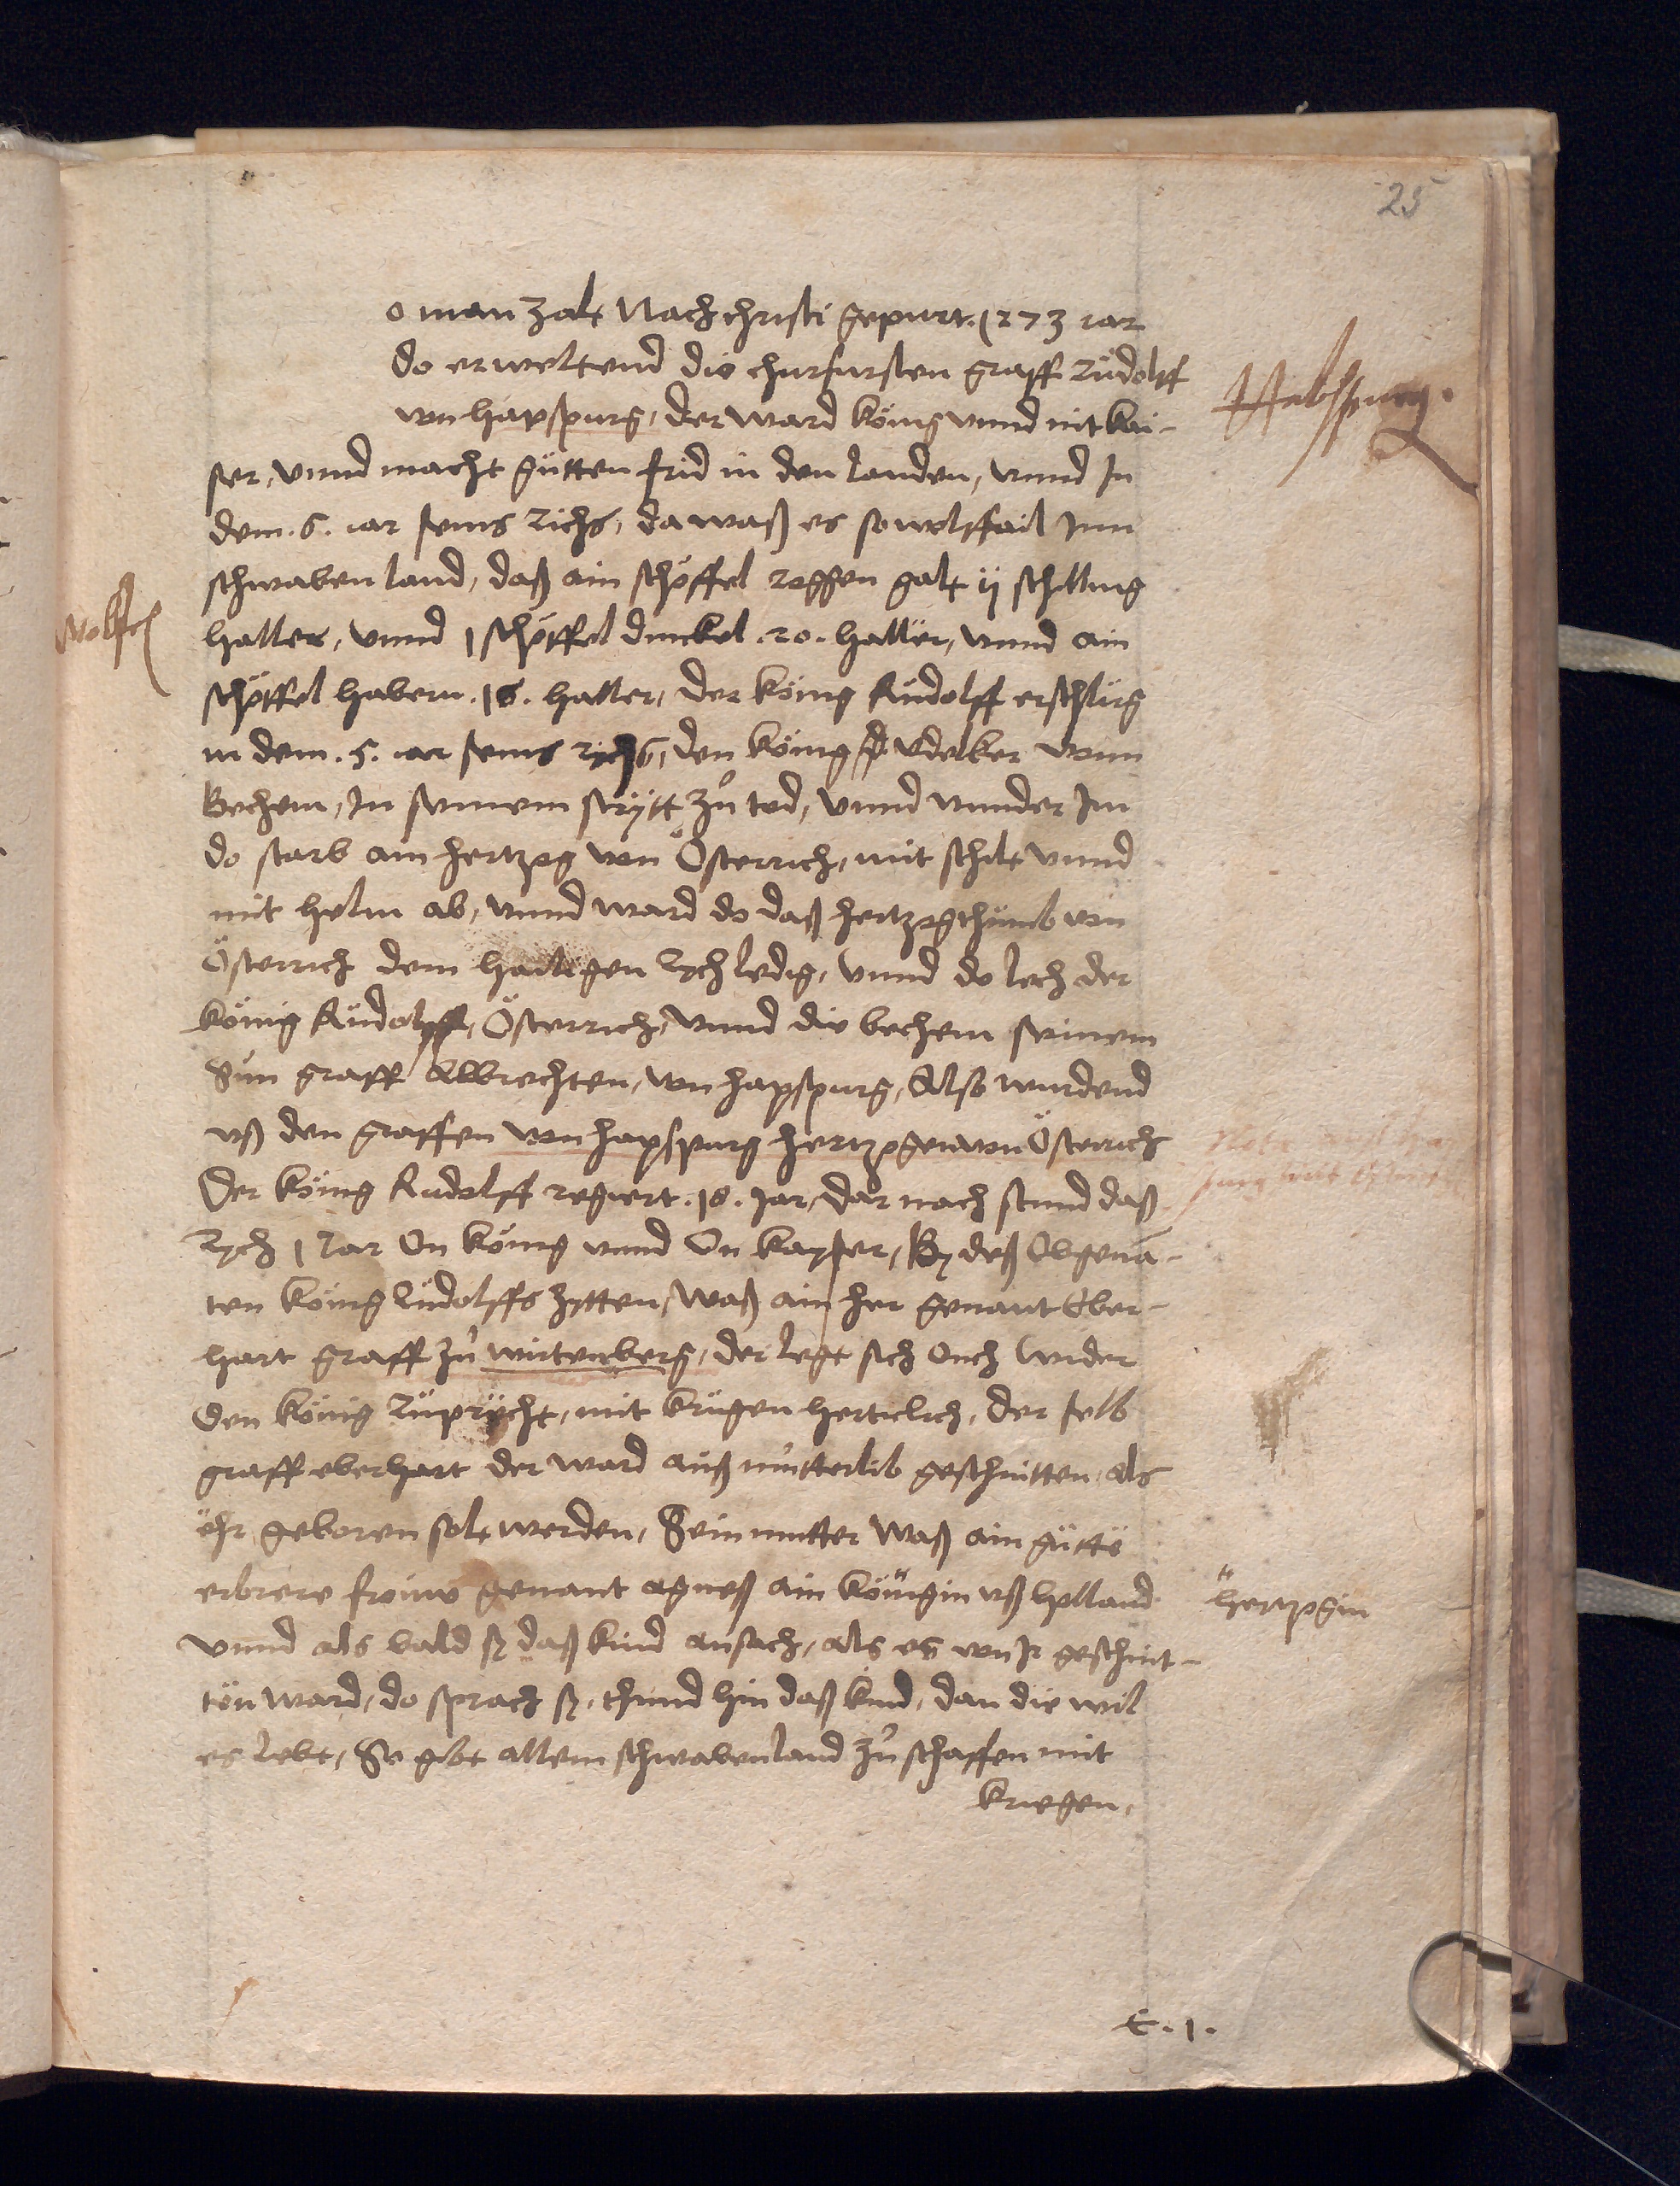 25
o man zalt Nach christi gepurt. 1273 iar
do erweltend die churfursten graff Rüdolff
von hapspurg, der ward könig vnnd nit kai-
Habspurg.
ser, vnnd macht gütten frid in den landen, vnnd In
dem .6. iar seins Richs, da waß es so wolffail Inn
schwaben land, daß ain schöffel roggen galt ij schilling
haller, vnnd 1 schöffel dinckel .20. haller, vnnd ain
schöffel habern .18. haller, der könig Rüdolff erschlüg
in dem .5. iar seins rychs, den könig Vdelker vonn
Bechem, In seinem strytt zů tod, vnnd vnnder Im
do starb ain hertzog von Österrich, mit schilt vnnd
mit helm ab, vnnd ward do daß hertzogthümb von
Österrich dem hailigen Rych ledig, vnnd do lech der
könig Rüdolff, Österrich, vnnd die bechem seinem
Sün graff Albrechten, von hapspurg, Also wurdend
vß den graffen von hapspurg hertzogen von Österrich
Der könig Rudolff regiert .18. Jar, dar nach stund daß
Rych 1 Jar On könig vnnd On kayser, By deß Obgenā-
ten könig Rüdolffs zytten, waß ain her genant Eber-
hart graff zů wirtenberg, der legt sich Ouch wider
den könig Rüprycht, mit krügen hertclich, der selb
graff eberhart der ward auß mütterlib geschnitten, als
ehr geboren solt werden, Sein mutter waß ain güttë
erbrere froiuw genant agneß ain köngin vß holland
hertzogin
vnnd als bald sy daß kind ansach, als es von Ir geschnit-
tën ward, do sprach sy, thund hin daß kind, dan die wil
es lebt, So gibt allem schwabenland zů schaffen mit
kriegen,
E. 1.